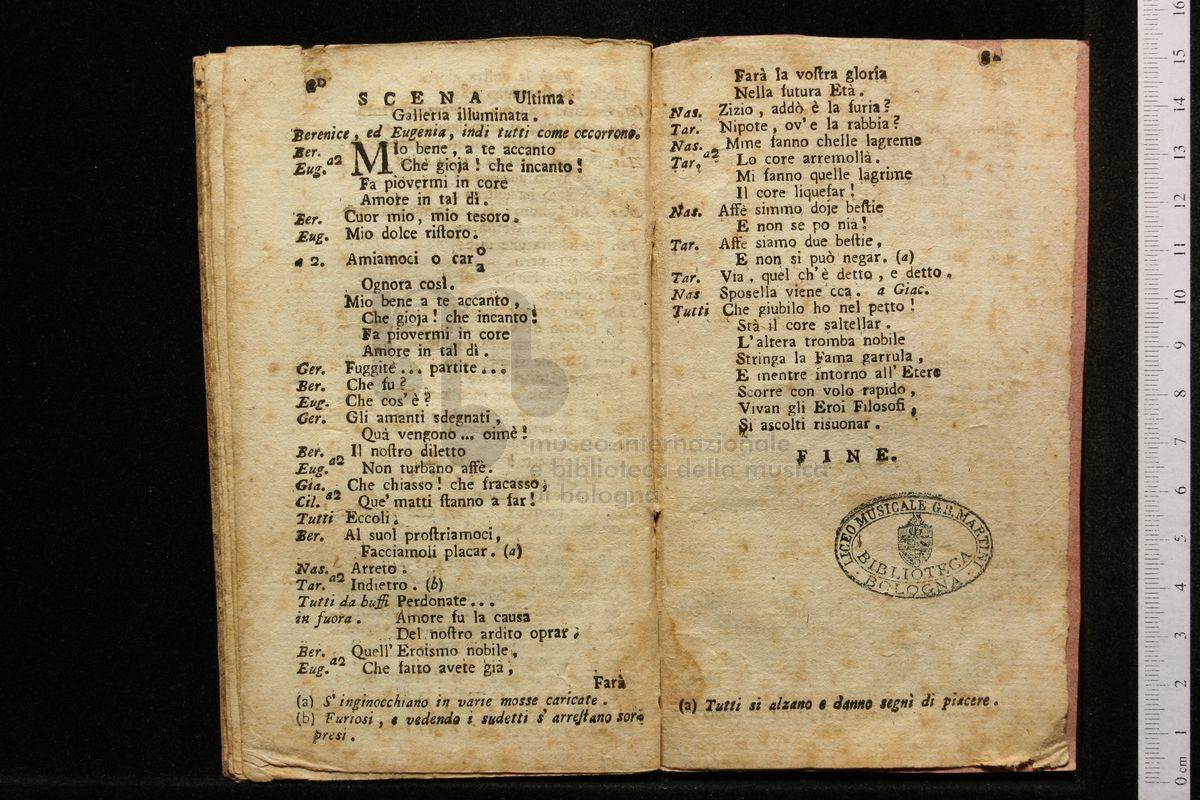 60
SCENA Ultima.
Galleria illuminata.
Berenice, ed Eugenia, indi tutti come occorrono.
Ber. a2 MIo bene, a te accanto
Eug. Che gioja! che incanto!
Fa piovermi in core
Amore in tal dì.
Ber. Cuor mio, mio tesoro.
Eug. Mio dolce riſtoro.
a 2. Amiamoci o caro
a
Ognora così.
Mio bene a te accanto,
Che gioja! che incanto!
Fa piovermi in core
Amore in tal dì.
Ger. Fuggite... partite...
Ber. Che fu?
Eug. Che cos'è?
Ger. Gli amanti sdegnati,
Quà vengono... oimè!
Ber. a2 Il noſtro diletto
Eug. Non turbano affè.
Gia. a2 Che chiasso! che fracasso,
Cil. Que' matti ſtanno a far!
Tutti Eccoli.
Ber. Al suol proſtriamoci,
Facciamoli placar. (a)
Nas. a2 Arreto.
Tar. Indietro. (b)
Tutti da buffi Perdonate...
in fuora. Amore fu la causa
Del noſtro ardito oprar.
Ber. a2 Quell' Eroismo nobile,
Eug. Che fatto avete già,
Farà
(a) S' inginocchiano in varie mosse caricate.
(b) Furiosi, e vedendo i sudetti s' arreſtano sor-
presi.
Farà la voſtra gloria
Nella futura Età.
Nas. Zizio, addò è la furia?
Tar. Nipote, ov' e la rabbia?
Nas. a2 Mme fanno chelle lagreme
Tar. Lo core arremollà.
Mi fanno quelle lagrime
Il core liquefar!
Nas. Affè simmo doje beſtie
E non se po nia!
Tar. Affe siamo due beſtie,
E non si può negar. (a)
Tar. Via, quel ch'è detto, e detto.
Nas Sposella viene cca. a Giac.
Tutti Che giubilo ho nel petto!
Stà il core saltellar.
L'altera tromba nobile
Stringa la Fama garrula,
E mentre intorno all' Etere
Scorre con volo rapido,
Vivan gli Eroi Filosofi,
Si ascolti risuonar.
FINE.
LICEO MUSICALE G.B. MARTINI
BIBLIOTECA
BOLOGNA
(a) Tutti si alzano e danno segni di piacere.
museo internazionale
e biblioteca della musica
di bologna
0 cm 1 2 3 4 5 6 7 8 9 10 11 12 13 14 15 16